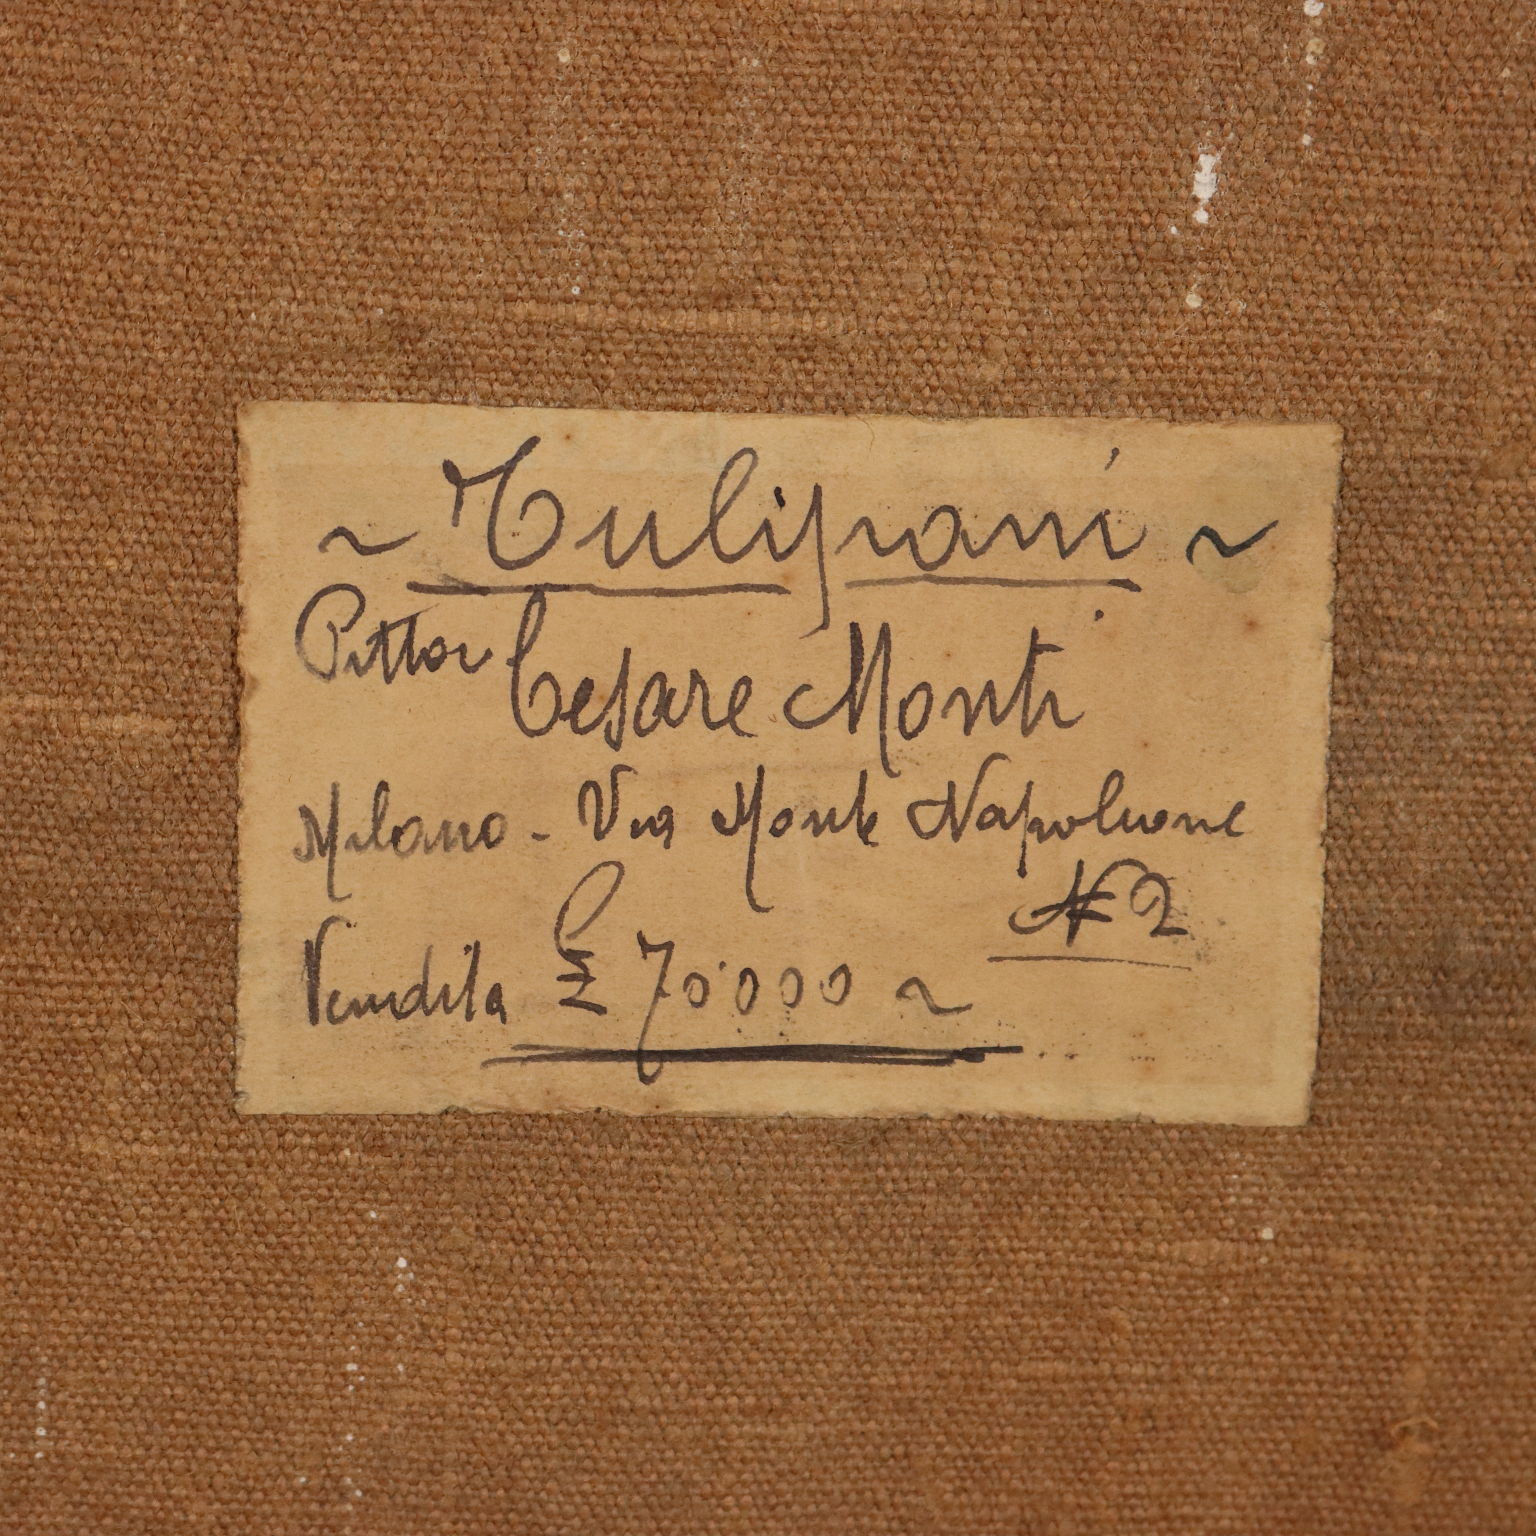 ~ Tulipani ~
Pittor Cesare Monti
Milano - Via Monte Napoleone
N 2
Vendita £ 70.000 ~